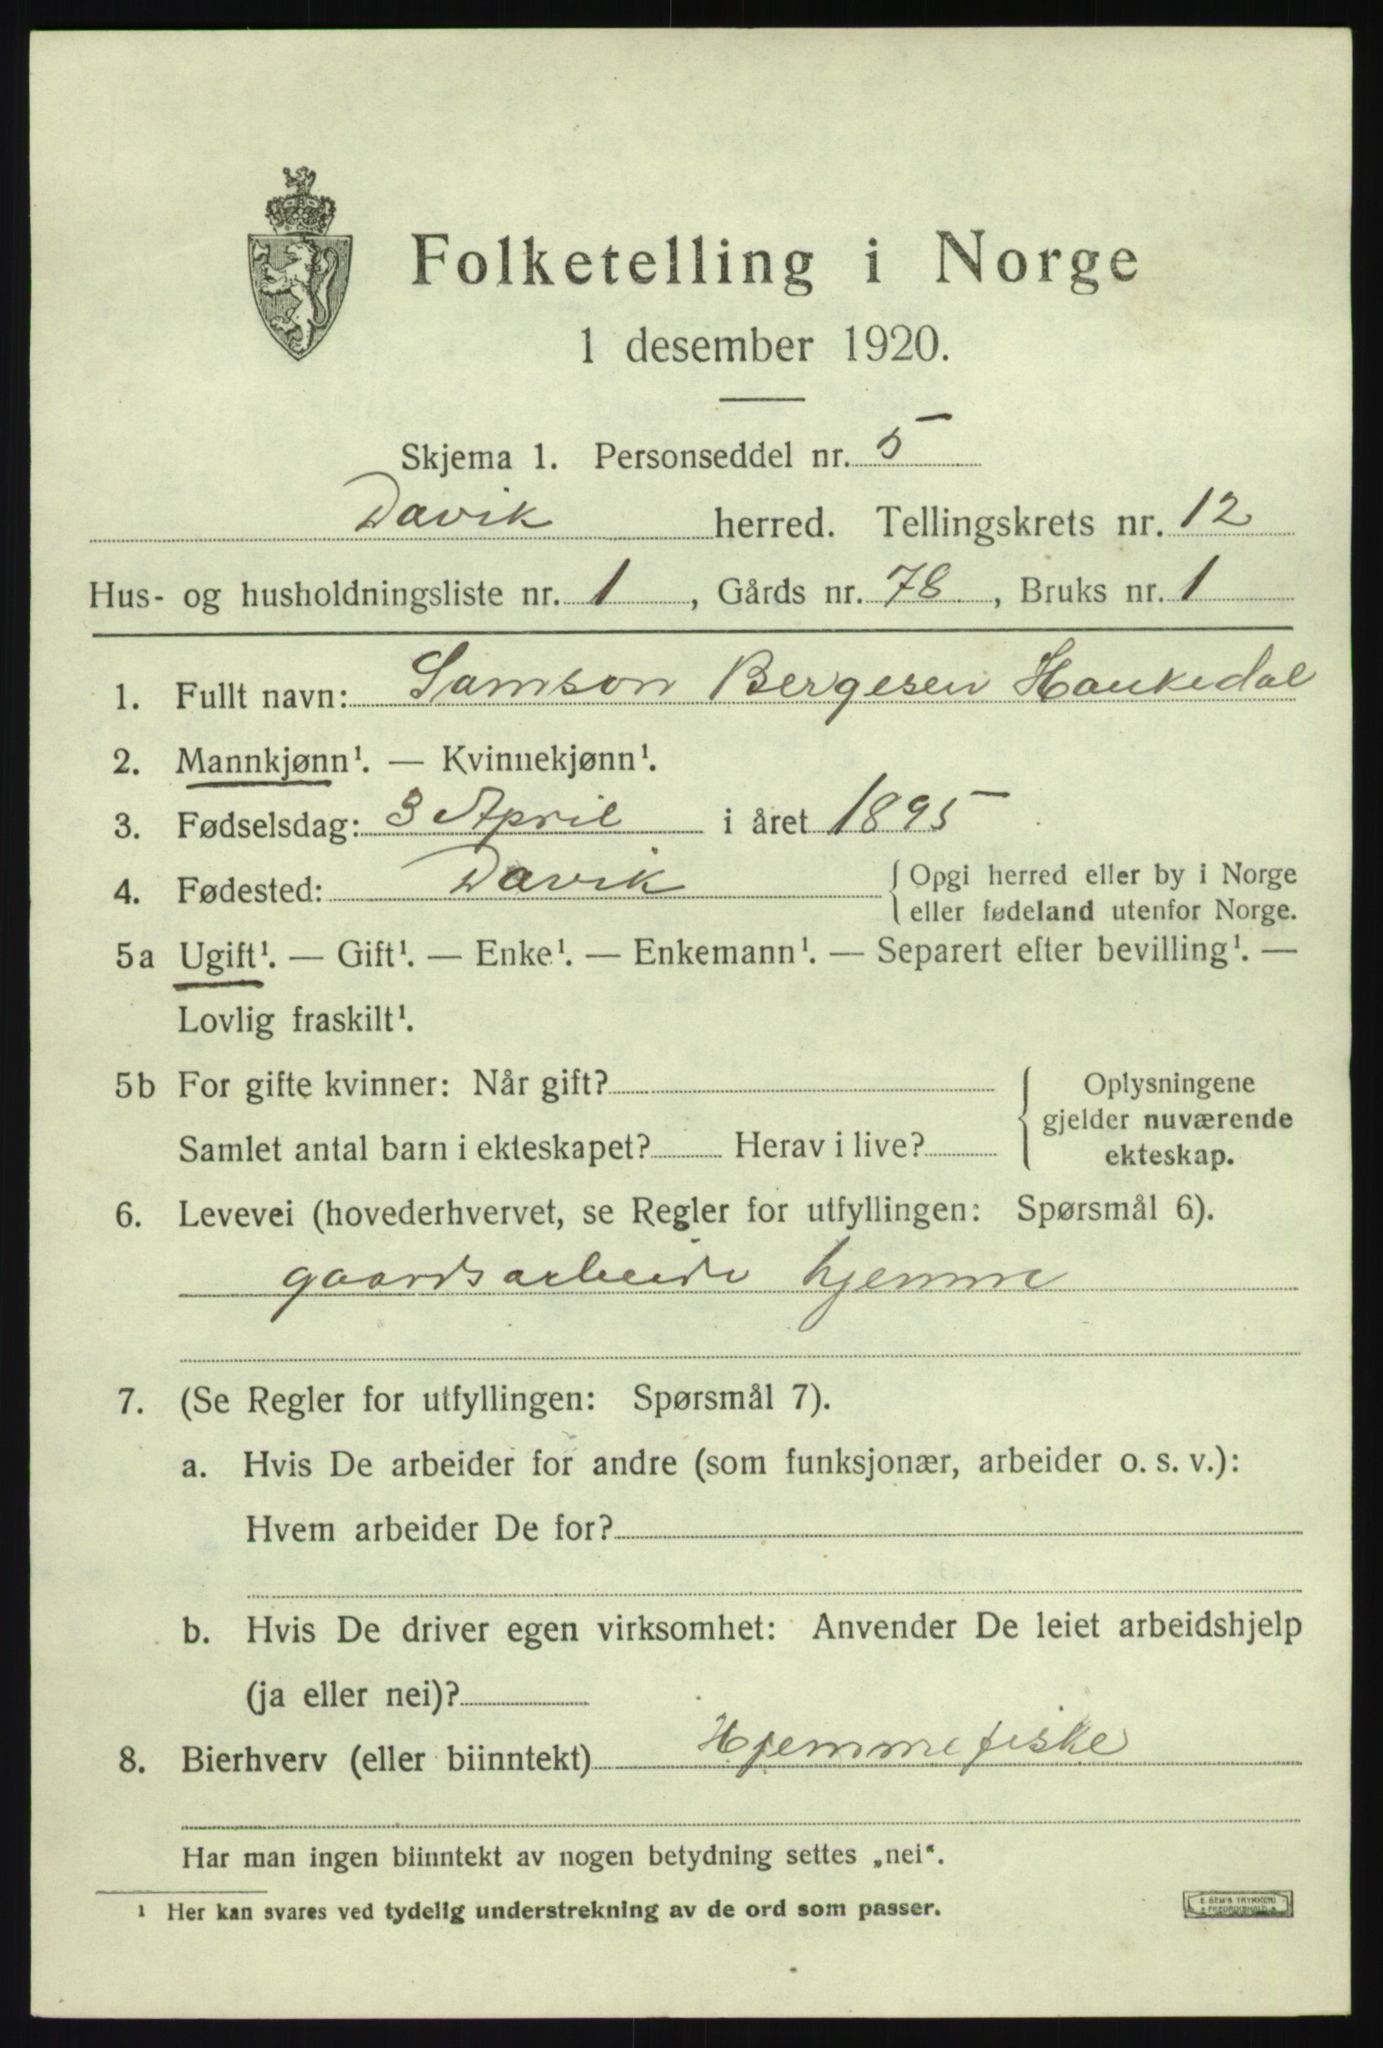 Folketelling i Norge
1 desember 1920.
Skjema 1. Personseddel nr. 5
Davik herred. Tellingskrets nr. 12
Hus- og husholdningsliste nr. 1, Gårds nr. 78, Bruks nr. 1
1. Fullt navn: Samson Bergesen Haukedal
2. Mannkjønn¹. — Kvinnekjønn¹.
3. Fødselsdag: 3 April i året 1895
4. Fødested: Davik
Opgi herred eller by i Norge
eller fødeland utenfor Norge.
5a Ugift¹. — Gift¹. — Enke¹. — Enkemann¹. — Separert efter bevilling¹. —
Lovlig fraskilt¹.
5b For gifte kvinner: Når gift?
Samlet antal barn i ekteskapet? Herav i live?
Oplysningene
gjelder nuværende
ekteskap.
6. Levevei (hovederhvervet, se Regler for utfyllingen: Spørsmål 6).
gaardsarbeide hjemme
7. (Se Regler for utfyllingen: Spørsmål 7).
a. Hvis De arbeider for andre (som funksjonær, arbeider o. s. v.):
Hvem arbeider De for?
b. Hvis De driver egen virksomhet: Anvender De leiet arbeidshjelp
(ja eller nei)?
8. Bierhverv (eller biinntekt) Hjemmefiske
Har man ingen biinntekt av nogen betydning settes „nei“.
¹ Her kan svares ved tydelig understrekning av de ord som passer.
E. SEM'S TRYKKERI
FREDRIKSHALD